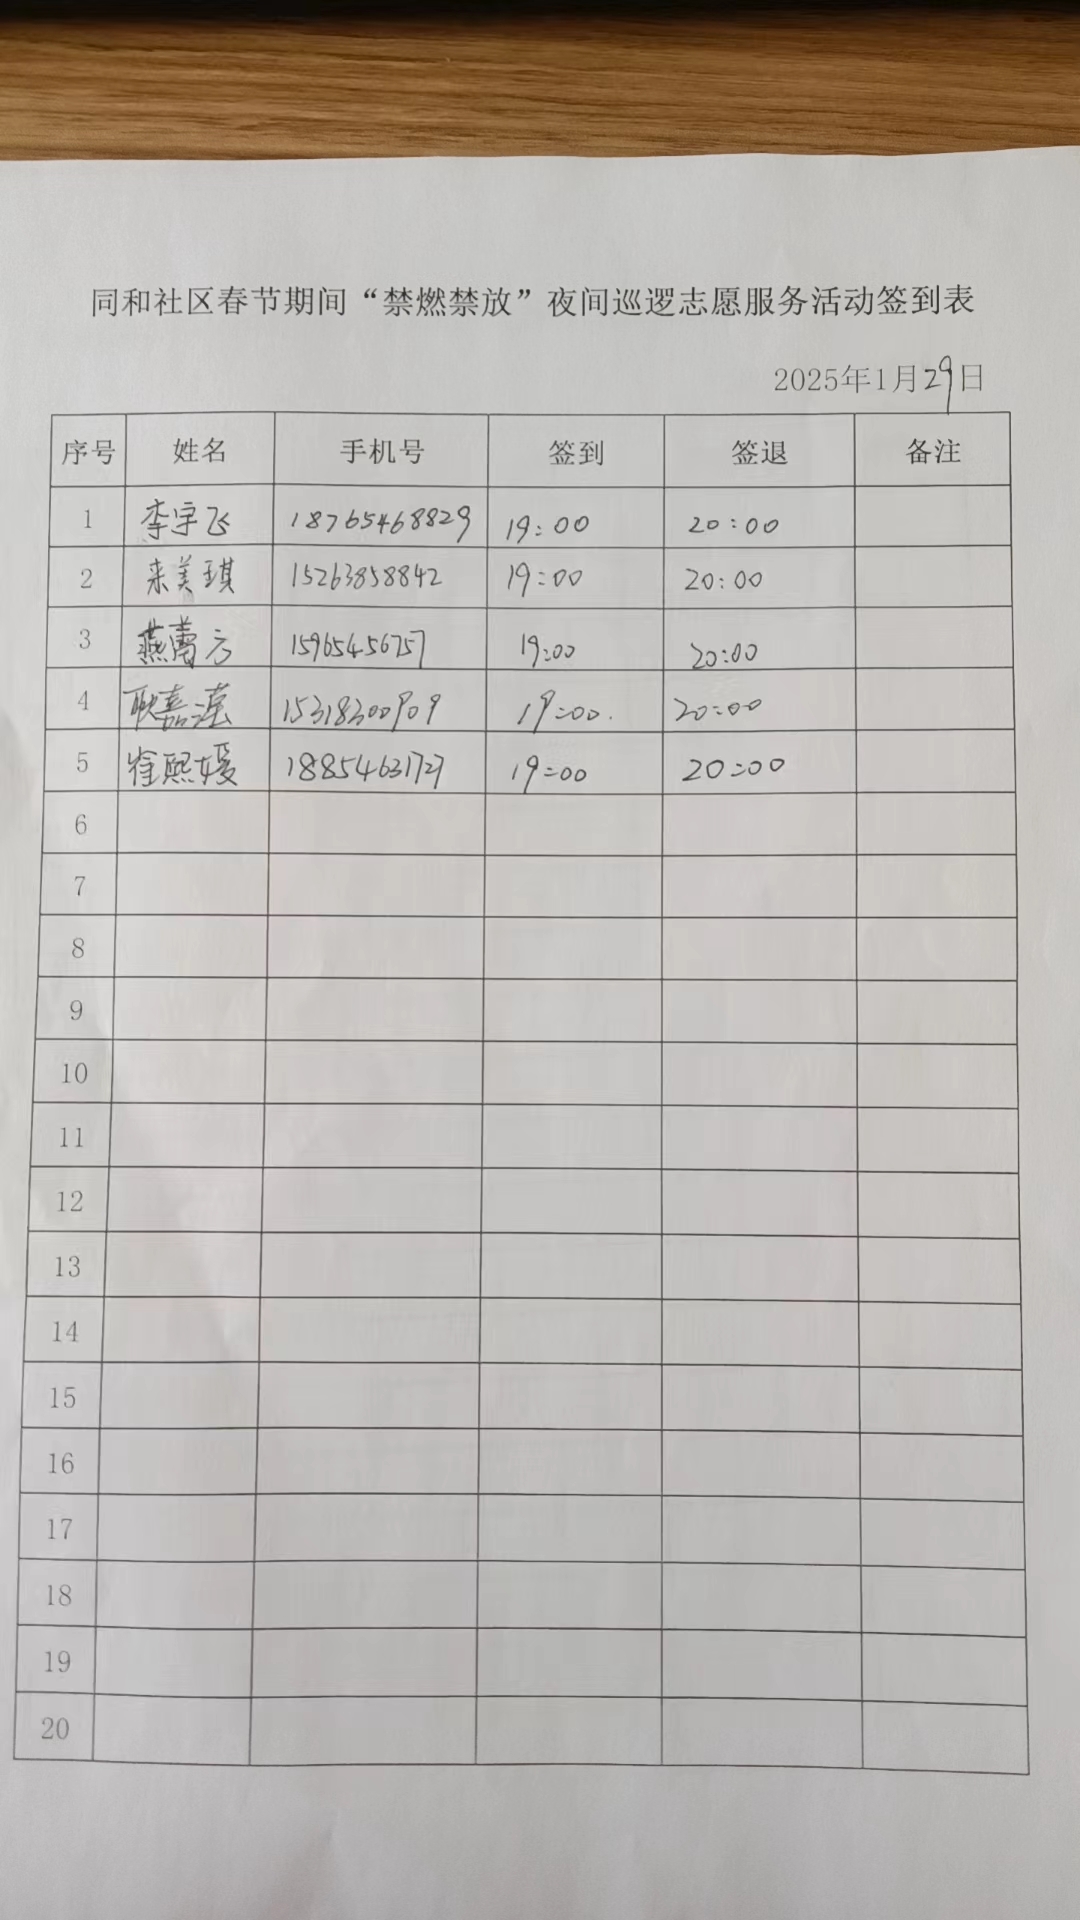 同和社区春节期间“禁燃禁放”夜间巡逻志愿服务活动签到表
2025年1月29日
序号 姓名 手机号 签到 签退 备注
1 李宇飞 18765468829 19:00 20:00
2 来美琪 15263858842 19:00 20:00
3 燕蕾方 15965456757 19:00 20:00
4 耿嘉滢 15318300909 19:00. 20:00
5 崔熙媛 18854631727 19:00 20:00
6
7
8
9
10
11
12
13
14
15
16
17
18
19
20